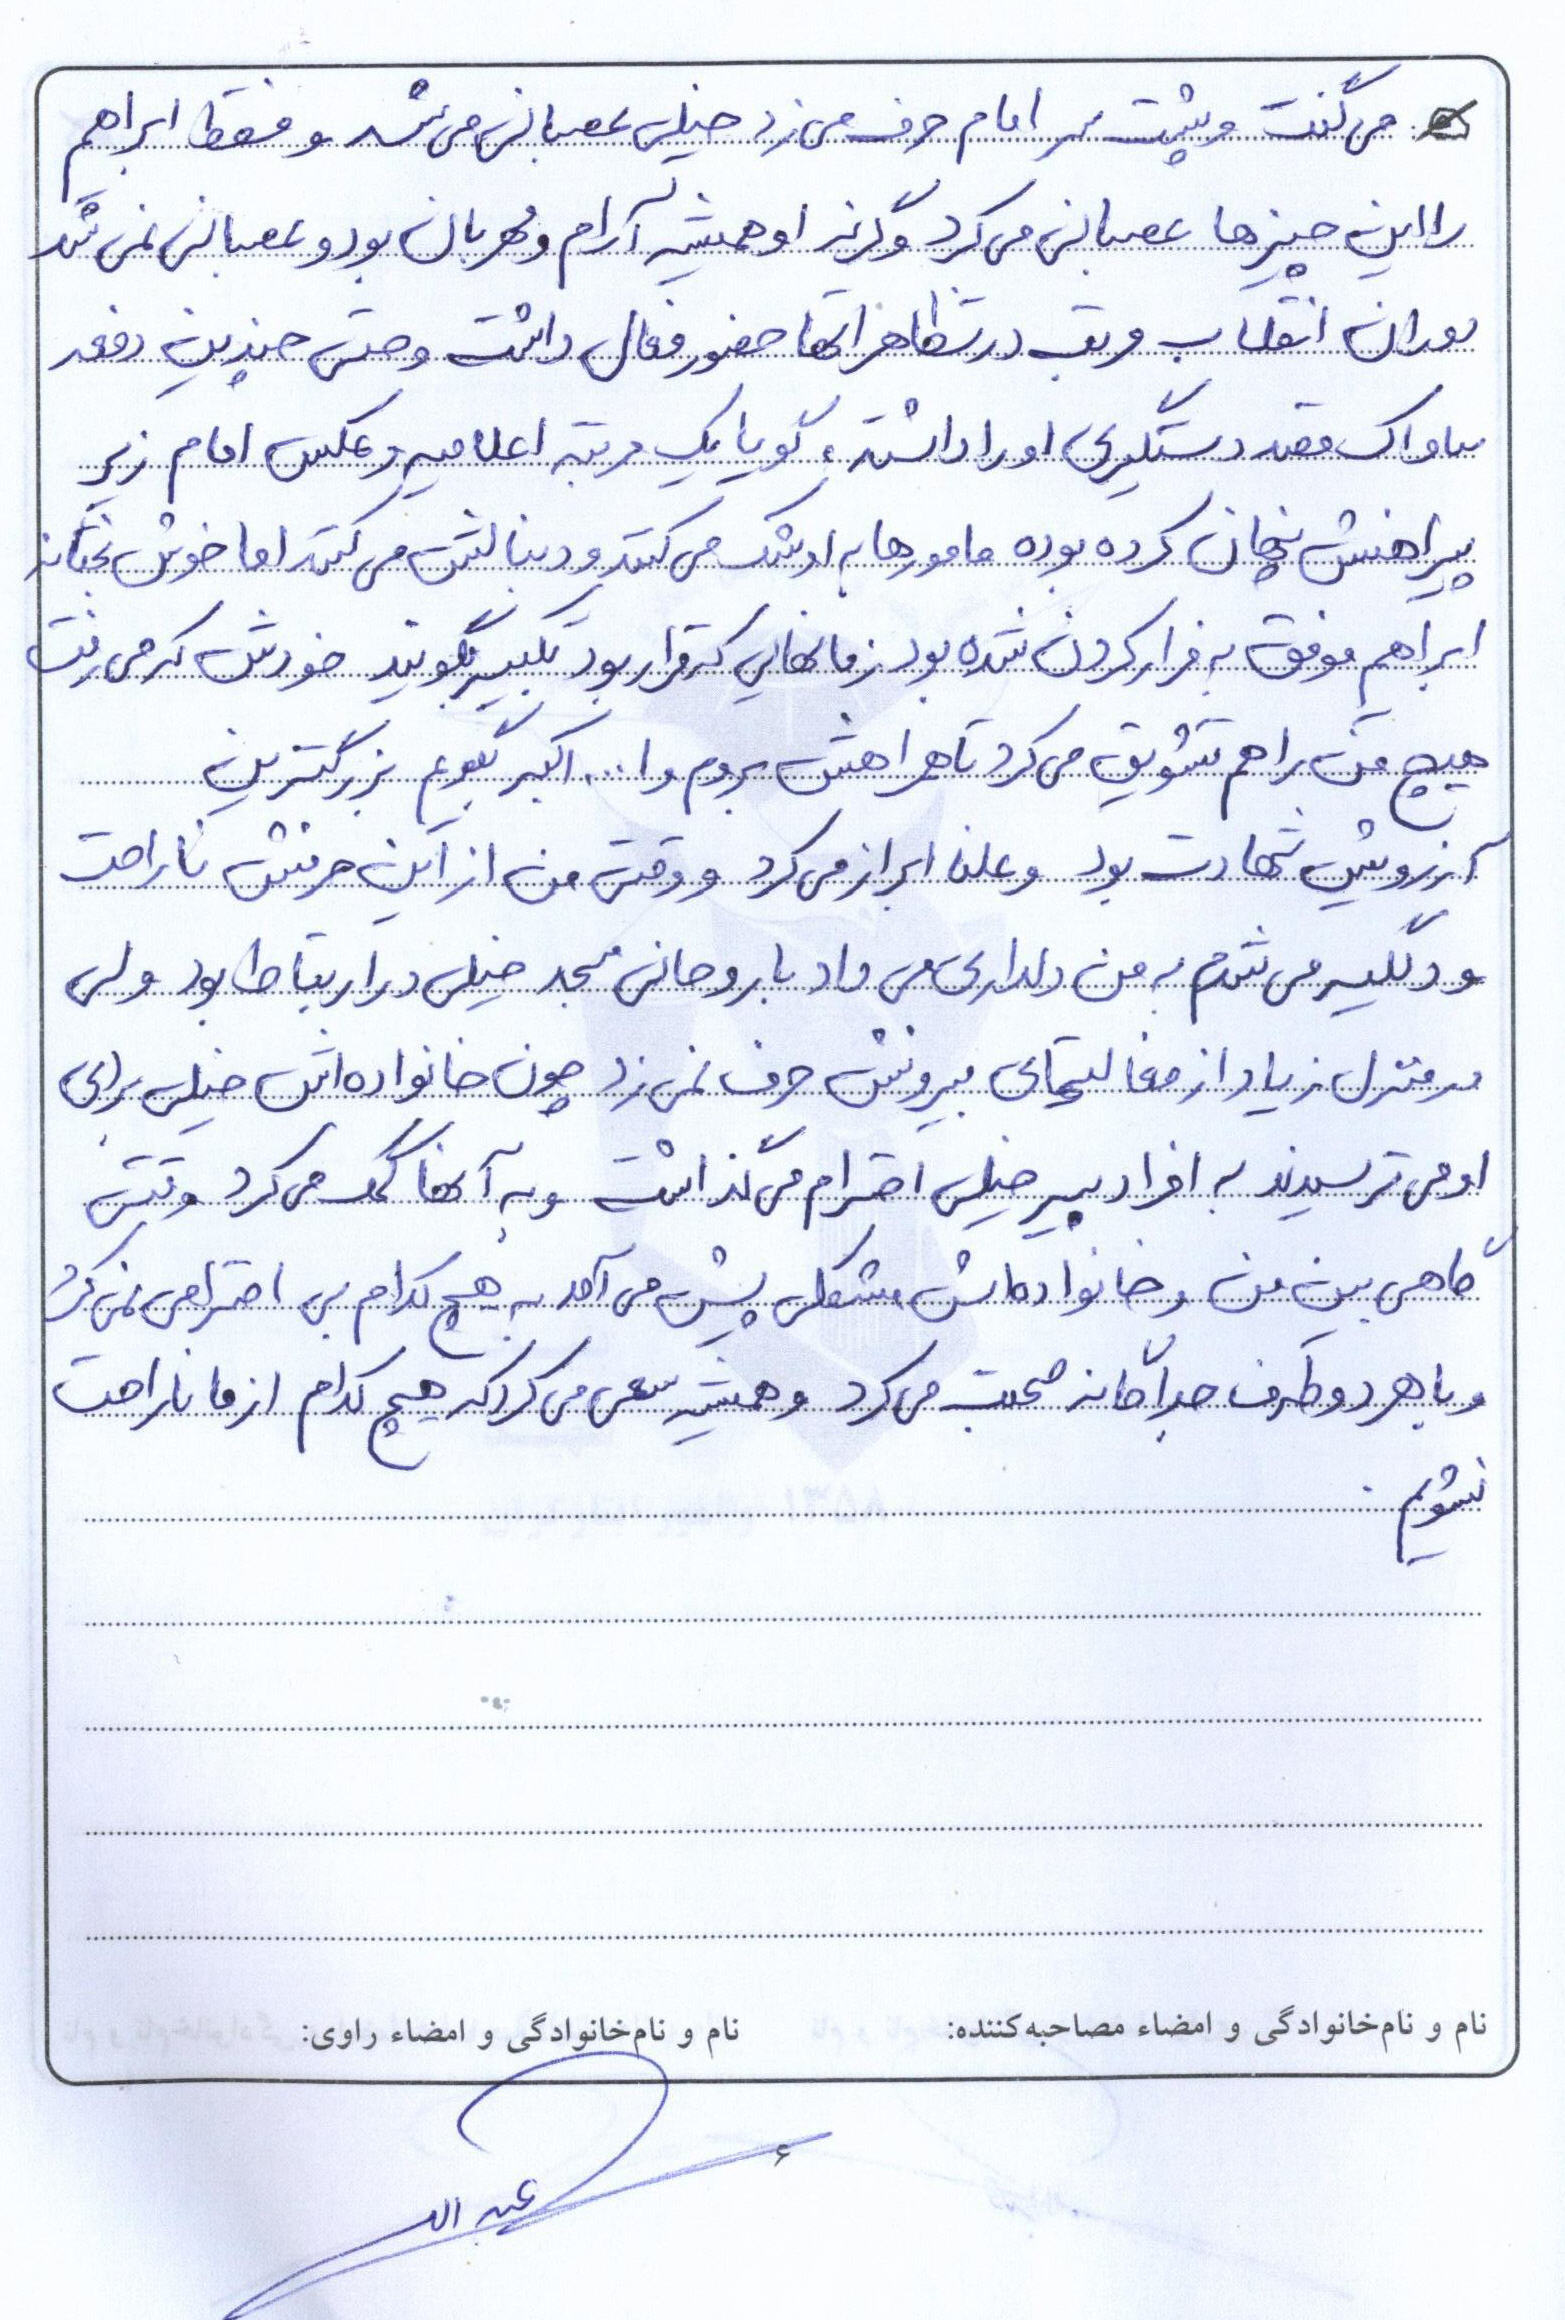 می گفت و پشت سر امام حرف می زد خیلی عصبانی می شد و فقط ابراهیم
را این چیزها عصبانی می کرد وگرنه او همیشه آرام و مهربان بود و عصبانی نمی شد
دوران انقلاب مرتب در تظاهراتها حضور فعال داشت و حتی چندین دفعه
ساواک قصد دستگیری او را داشته، گویا یک مرتبه اعلامیه و عکس امام زیر
پیراهنش پنهان کرده بوده مامورها به او شک می کنند و دنبالش می کنند اما خوش بختانه
ابراهیم موفق به فرار کردن شده بود زمانهایی که قرار بود تکبیر بگویند خودش که می رفت
هیچ من را هم تشویق می کرد تا همراهش بروم و ا... اکبر بگویم بزرگترین
آرزویش شهادت بود و علنا ابراز می کرد و وقتی من از این حرفش ناراحت
و دلگیر می شدم به من دلداری می داد با روحانی مسجد خیلی در ارتباط بود ولی
در منزل زیاد از فعالیتهای بیرونش حرف نمی زد چون خانواده اش خیلی برای
او می ترسیدند به افراد پیر خیلی احترام می گذاشت و به آنها کمک می کرد وقتی
گاهی بین من و خانواده اش مشکلی پیش می آمد به هیچ کدام بی احترامی نمی کرد
و با هر دو طرف جداگانه صحبت می کرد و همیشه سعی می کرد که هیچ کدام از ما ناراحت
نشویم.
نام و نام‌خانوادگی و امضاء مصاحبه‌کننده: نام و نام‌خانوادگی و امضاء راوی:
۶